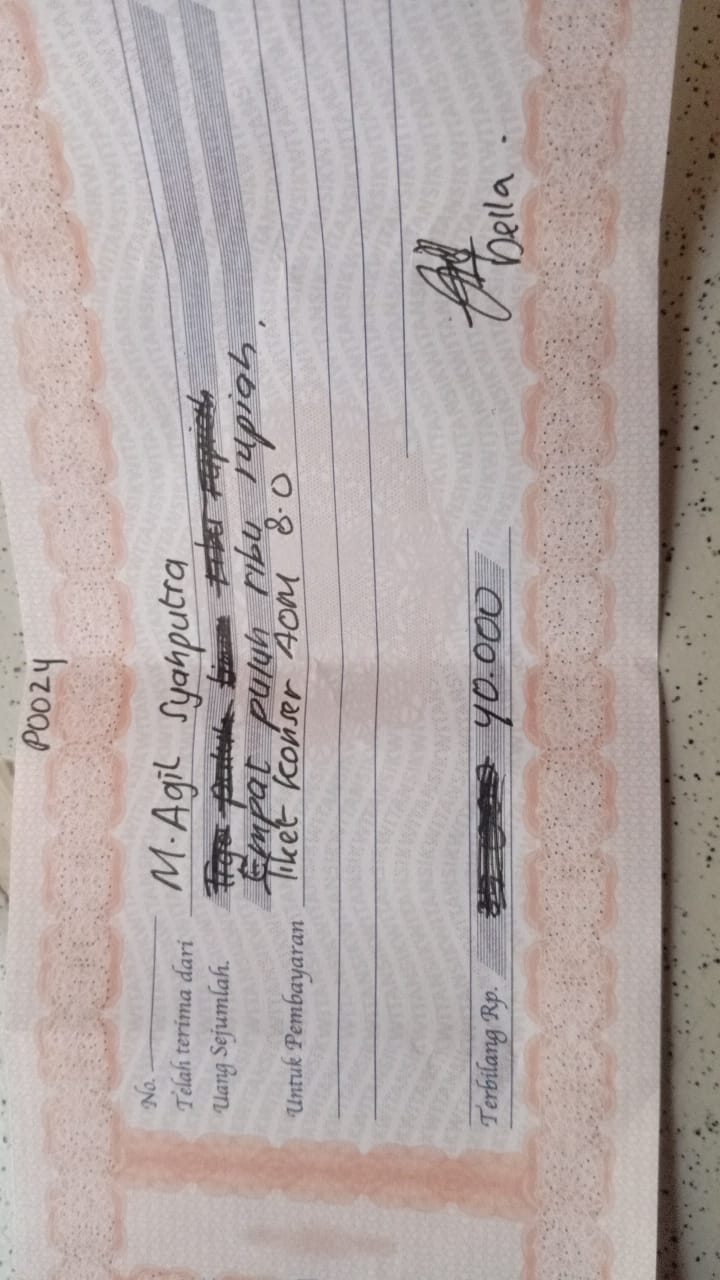 P0024
No.
Telah terima dari M. Agil Syahputra
Uang Sejumlah.
Empat puluh ribu rupiah.
Untuk Pembayaran Tiket Konser AOM 8.0
Terbilang Rp. 40.000
Della.